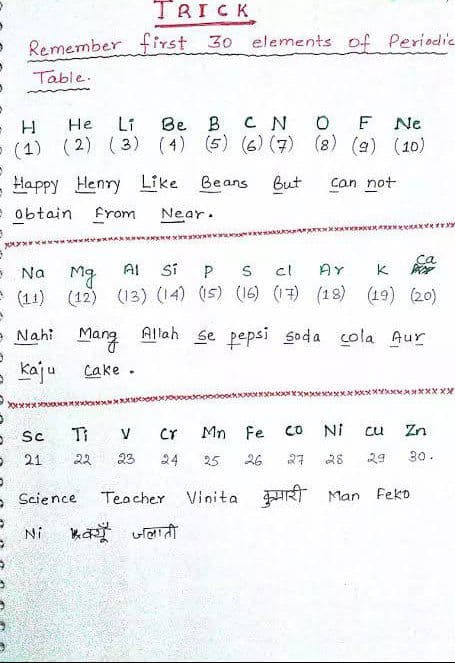 TRICK
Remember first 30 elements of Periodic
Table.
H He Li Be B C N O F Ne
(1) (2) (3) (4) (5) (6) (7) (8) (9) (10)
Happy Henry Like Beans But Can not
obtain From Near.
Na Mg Al Si P S Cl Ar K Ca
(11) (12) (13) (14) (15) (16) (17) (18) (19) (20)
Nahi Mang Allah se pepsi soda cola Aur
Kaju Cake.
Sc Ti V Cr Mn Fe CO Ni Cu Zn
21 22 23 24 25 26 27 28 29 30.
Science Teacher Vinita कुमारी Man Feko
Ni क्यूँ जलाती